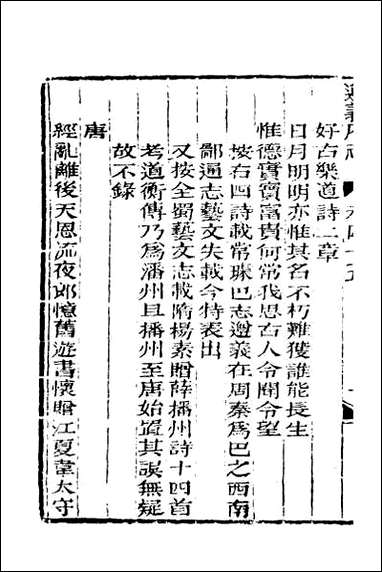 遵義府志
卷四十五
好古樂道詩二章
日月明明亦惟其名不朽難獲誰能長生
惟德實寶富貴何常我思古人令聞令望
按右四詩載常璩巴志遵義在周秦爲巴之西南
鄙通志藝文失載今特表出
又按全蜀藝文志載隋楊素贈薛播州詩十四首
考道衡傳乃爲潘州且播州至唐始置其誤無疑
故不錄
唐
經亂離後天恩流夜郎憶舊遊書懷贈江夏韋太守